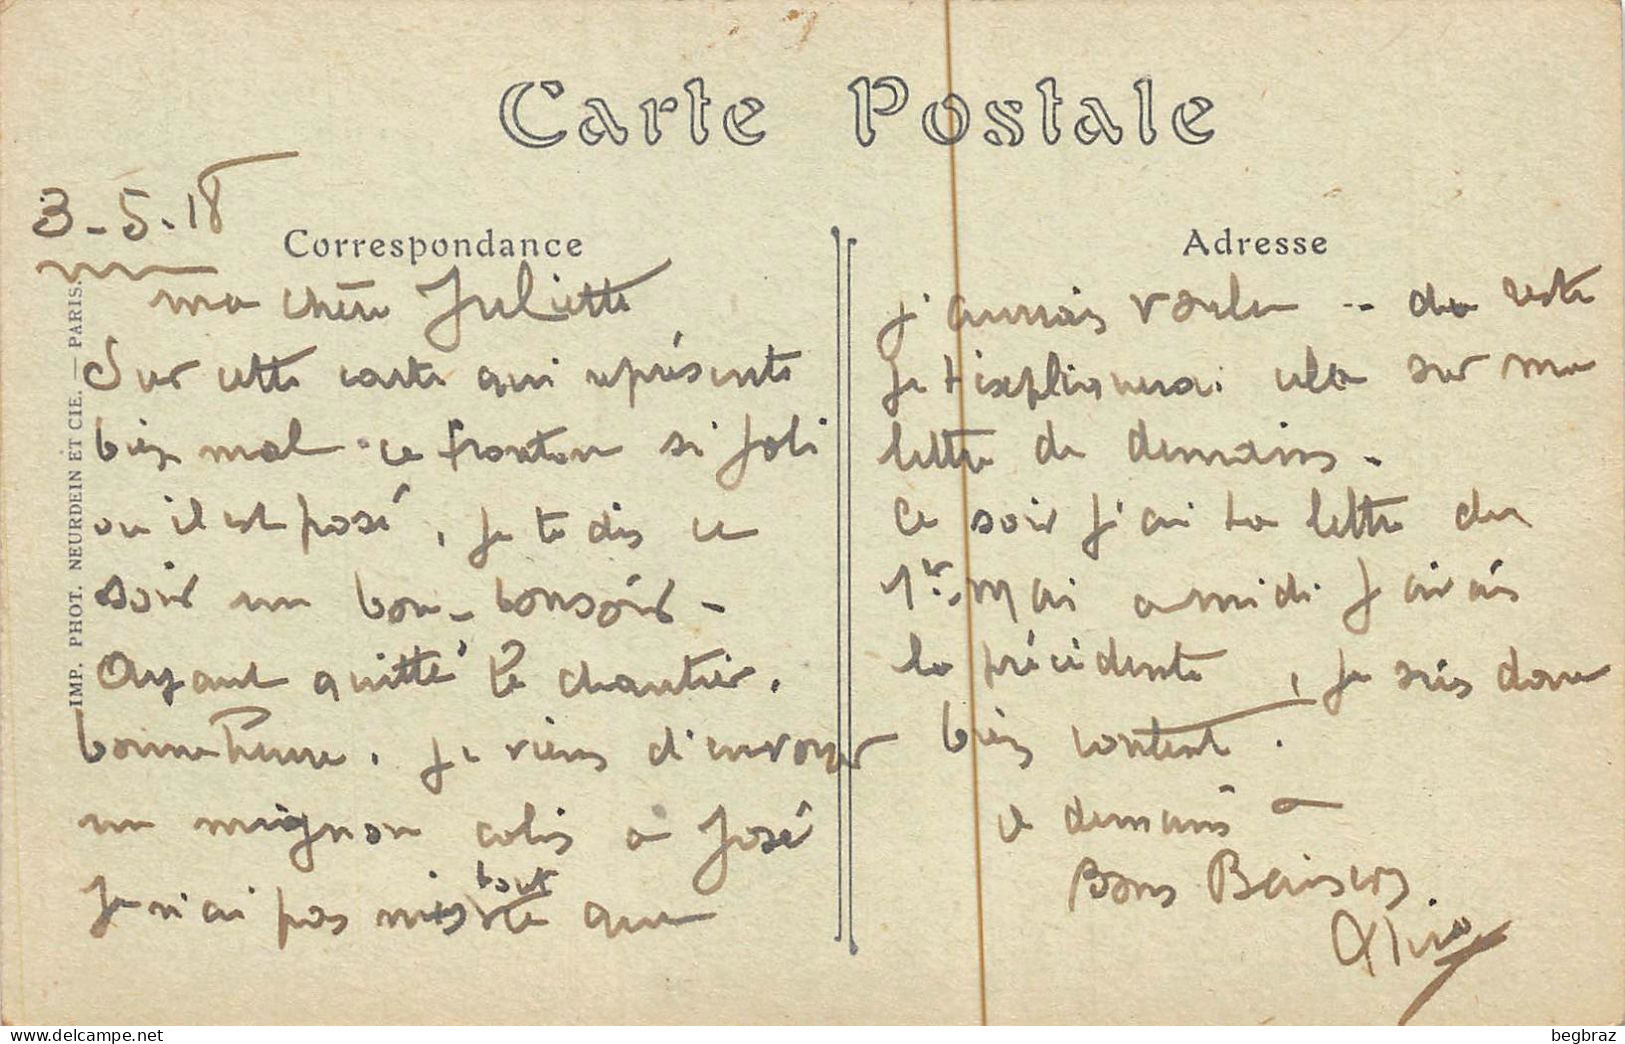 Carte Postale
3-5-18
Correspondance
ma chère Juliette
Sur cette carte qui représente
bien mal ce fronton si joli
où il est posé, je te dis ce
soir un bon-bonsoir -
Ayant quitté le chantier.
bonne heure. je viens d'envoyer
un mignon colis à José
Je n'ai pas mis tout ce que
IMP. PHOT. NEURDEIN ET CIE. — PARIS.
Adresse
j'aurais voulu -- du reste
je t'expliquerai cela sur ma
lettre de demain -
Ce soir j'ai ta lettre du
1er Mai a midi j'avais
la précédente, je suis donc
bien content.
a demain
Bons Baisers
begbraz